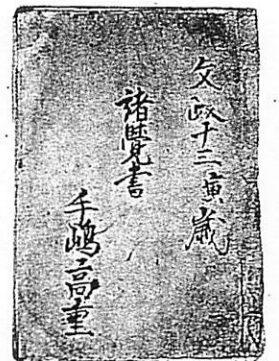 文政十三寅歳
諸覚書
手嶋高重